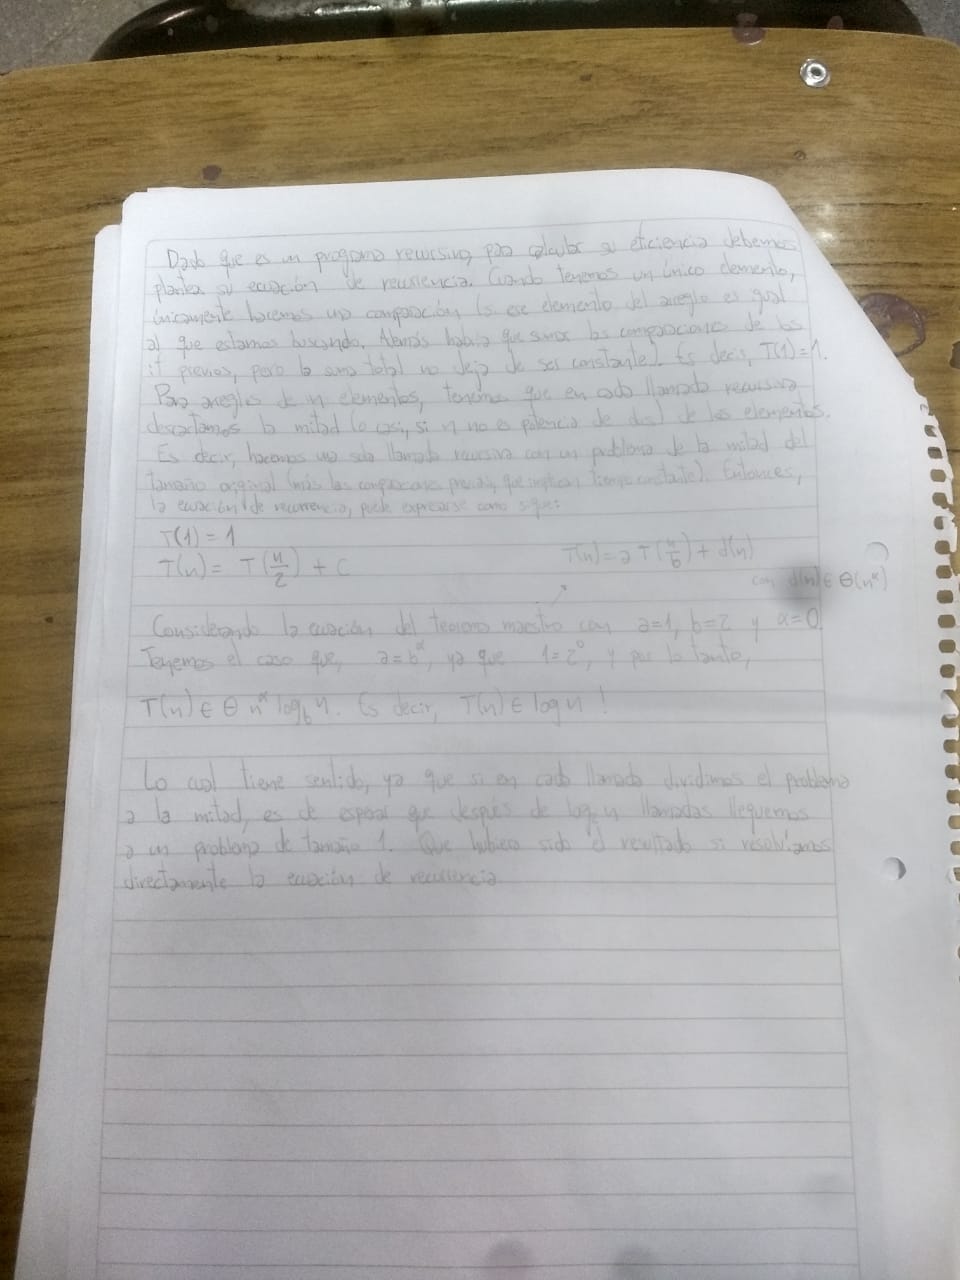 Dado que es un programa recursivo, para calcular su eficiencia debemos
plantear su ecuación de recurrencia. Cuando tenemos un único elemento,
únicamente hacemos una comparación (si ese elemento del arreglo es igual
al que estamos buscando. Además habría que sumar las comparaciones de los
if previos, pero la suma total no deja de ser constante). Es decir, T(1)=1.
Para arreglos de n elementos, tenemos que en cada llamada recursiva
descartamos la mitad (o casi, si n no es potencia de dos) de los elementos.
Es decir, hacemos una sola llamada recursiva con un problema de la mitad del
tamaño original (más las comparaciones previas, que implican tiempo constante). Entonces,
la ecuación de recurrencia, puede expresarse como sigue:
T(1) = 1
T(n) = T(n/2) + c
T(n) = a T(n/b) + d(n)
con d(n) ∈ Θ(n^α)
Considerando la ecuación del teorema maestro con a=1, b=2 y α=0
Tenemos el caso que, a=b^α, ya que 1=2^0, y por lo tanto,
T(n) ∈ Θ n^α log_b n. Es decir, T(n) ∈ log n !
Lo cual tiene sentido, ya que si en cada llamada dividimos el problema
a la mitad, es de esperar que después de log_2 n llamadas lleguemos
a un problema de tamaño 1. Que hubiera sido el resultado si resolvíamos
directamente la ecuación de recurrencia